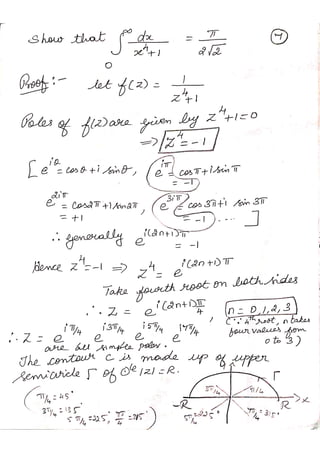 Show that ∫₀^∞ dx/(x⁴+1) = π/(2√2) ⑦
Proof :- let f(z) = 1/(z⁴+1)
Poles of f(z) are given by z⁴+1=0
=> z⁴ = -1
[e^{iθ} = cosθ + i sinθ, e^{iπ} = cosπ + i sinπ = -1
e^{2iπ} = cos2π + i sin2π = +1, e^{3iπ} = cos3π + i sin3π = -1 ....]
∴ generally e^{i(2n+1)π} = -1
Hence z⁴ = -1 => z⁴ = e^{i(2n+1)π}
Take fourth root on both sides
∴ z = e^{i(2n+1)π/4} n = 0,1,2,3
(∵ 4th root, n takes
four values from
0 to 3)
∴ z = e^{iπ/4} e^{i3π/4} e^{i5π/4} e^{i7π/4}
are all simple poles.
The contour C is made up of upper
semicircle Γ of Ole |z| = R.
π/4 = 45°
3π/4 = 135°
5π/4 = 225°, 7π/4 = 315°
Γ
3π/4 π/4
-R R x
5π/4 = 225° 7π/4 = 315°